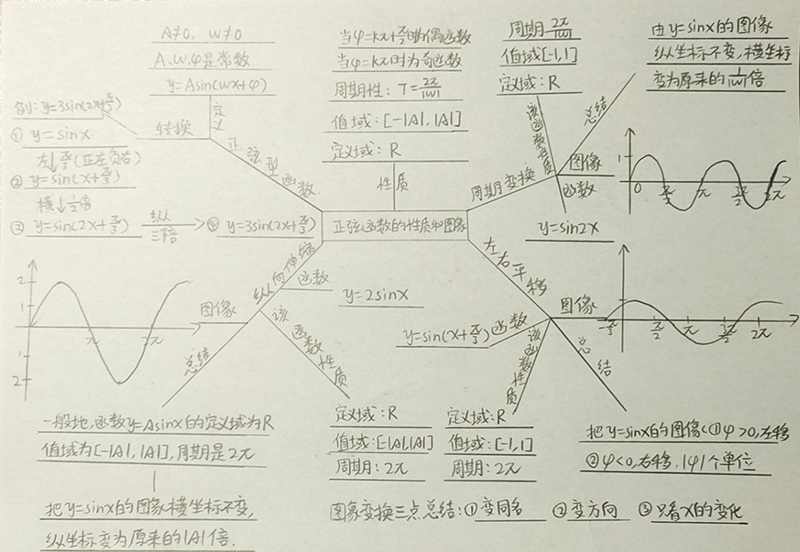 A≠0, W≠0
A、W、φ是常数
y=Asin(wx+φ)
定义
例: y=3sin(2x+π/3)
① y=sinx
左↓π/3(正左负右)
② y=sin(x+π/3)
横↓1/2倍
③ y=sin(2x+π/3)
纵从
三倍
④ y=3sin(2x+π/3)
转换
正弦型函数
当φ=kπ+π/2时为偶函数
当φ=kπ时为奇函数
周期性: T=2π/|w|
值域: [-|A|, |A|]
定义域: R
性质
正弦函数的性质和图像
周期2π/|w|
值域[-1,1]
定义域: R
该函数性质
周期变换
总结
由y=sinx的图像
纵坐标不变,横坐标
变为原来的1/|w|倍
图像
函数
y=sin2x
1
0
π/2
π
3π/2
2π
左右平移
图像
-π/3
π/2
π
3π/2
2π
函数
y=sin(x+π/3)
该函数性质
定义域: R
值域: [-1,1]
周期: 2π
总结
把y=sinx的图像<①φ>0,左移
②φ<0,右移.|φ|个单位
纵向伸缩
函数
y=2sinx
图像
2
1
1
2
π
2π
该函数性质
定义域: R
值域: [-|A|,|A|]
周期: 2π
总结
一般地,函数y=Asinx的定义域为R
值域为[-|A|, |A|],周期是2π
把y=sinx的图象横坐标不变,
纵坐标变为原来的|A|倍.
图象变换三点总结: ①变同名 ②变方向 ③只看x的变化